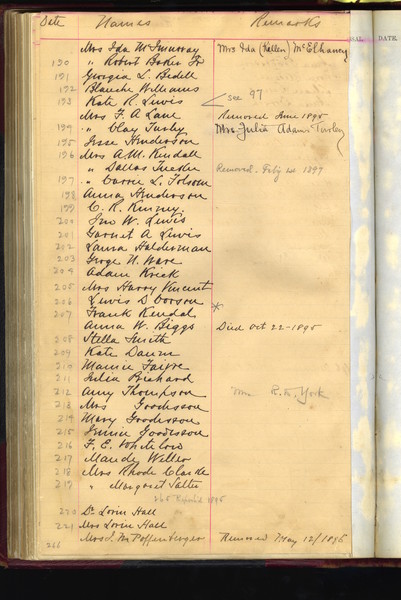 Date Names Remarks
Mrs Ida McMurray Mrs Ida (Kallen) McElhaney
190 " Robert Baker Jr
191 Georgia L. Bedell
192 Blanche Williams
193 Kate R. Lewis < see 97
Mrs F. A Lane Removed June 1895
194 " Clay Turley Mrs. Julia Adams Turley
195 Jesse Henderson
196 Mrs A. M. Kendall
" Dallas Removed. 1897
197 " Carrie L. Folsom
198 Anna Henderson
199 C. R. Kinney
200 Jno W. Lewis
201 Garnet A Lewis
202 Laura Halderman
203 George N. Ware
204 Adam Krick
205 Mrs Harry Vincent
206 Lewis D Dorson *
207 Frank Kendal
Anna W. Biggs Died Oct 22-1895
208 Stella Smith
209 Kate Daum
210 Mamie
211 Julia Prichard
212 Amy Thompson Mrs. R. M. York
213 Mrs Goodesson
214 Mary Goodesson
215 Goodesson
216 F. E. Whitlow
217 Maude Weller
218 Mrs Rhode Clarde
219 " Margaret Salter
265 Reported 1895
220 Dr Lovin Hall
221 Mrs Lovin Hall
Mrs J. M. Poffenberger Removed May 12/1896
266
DATE.